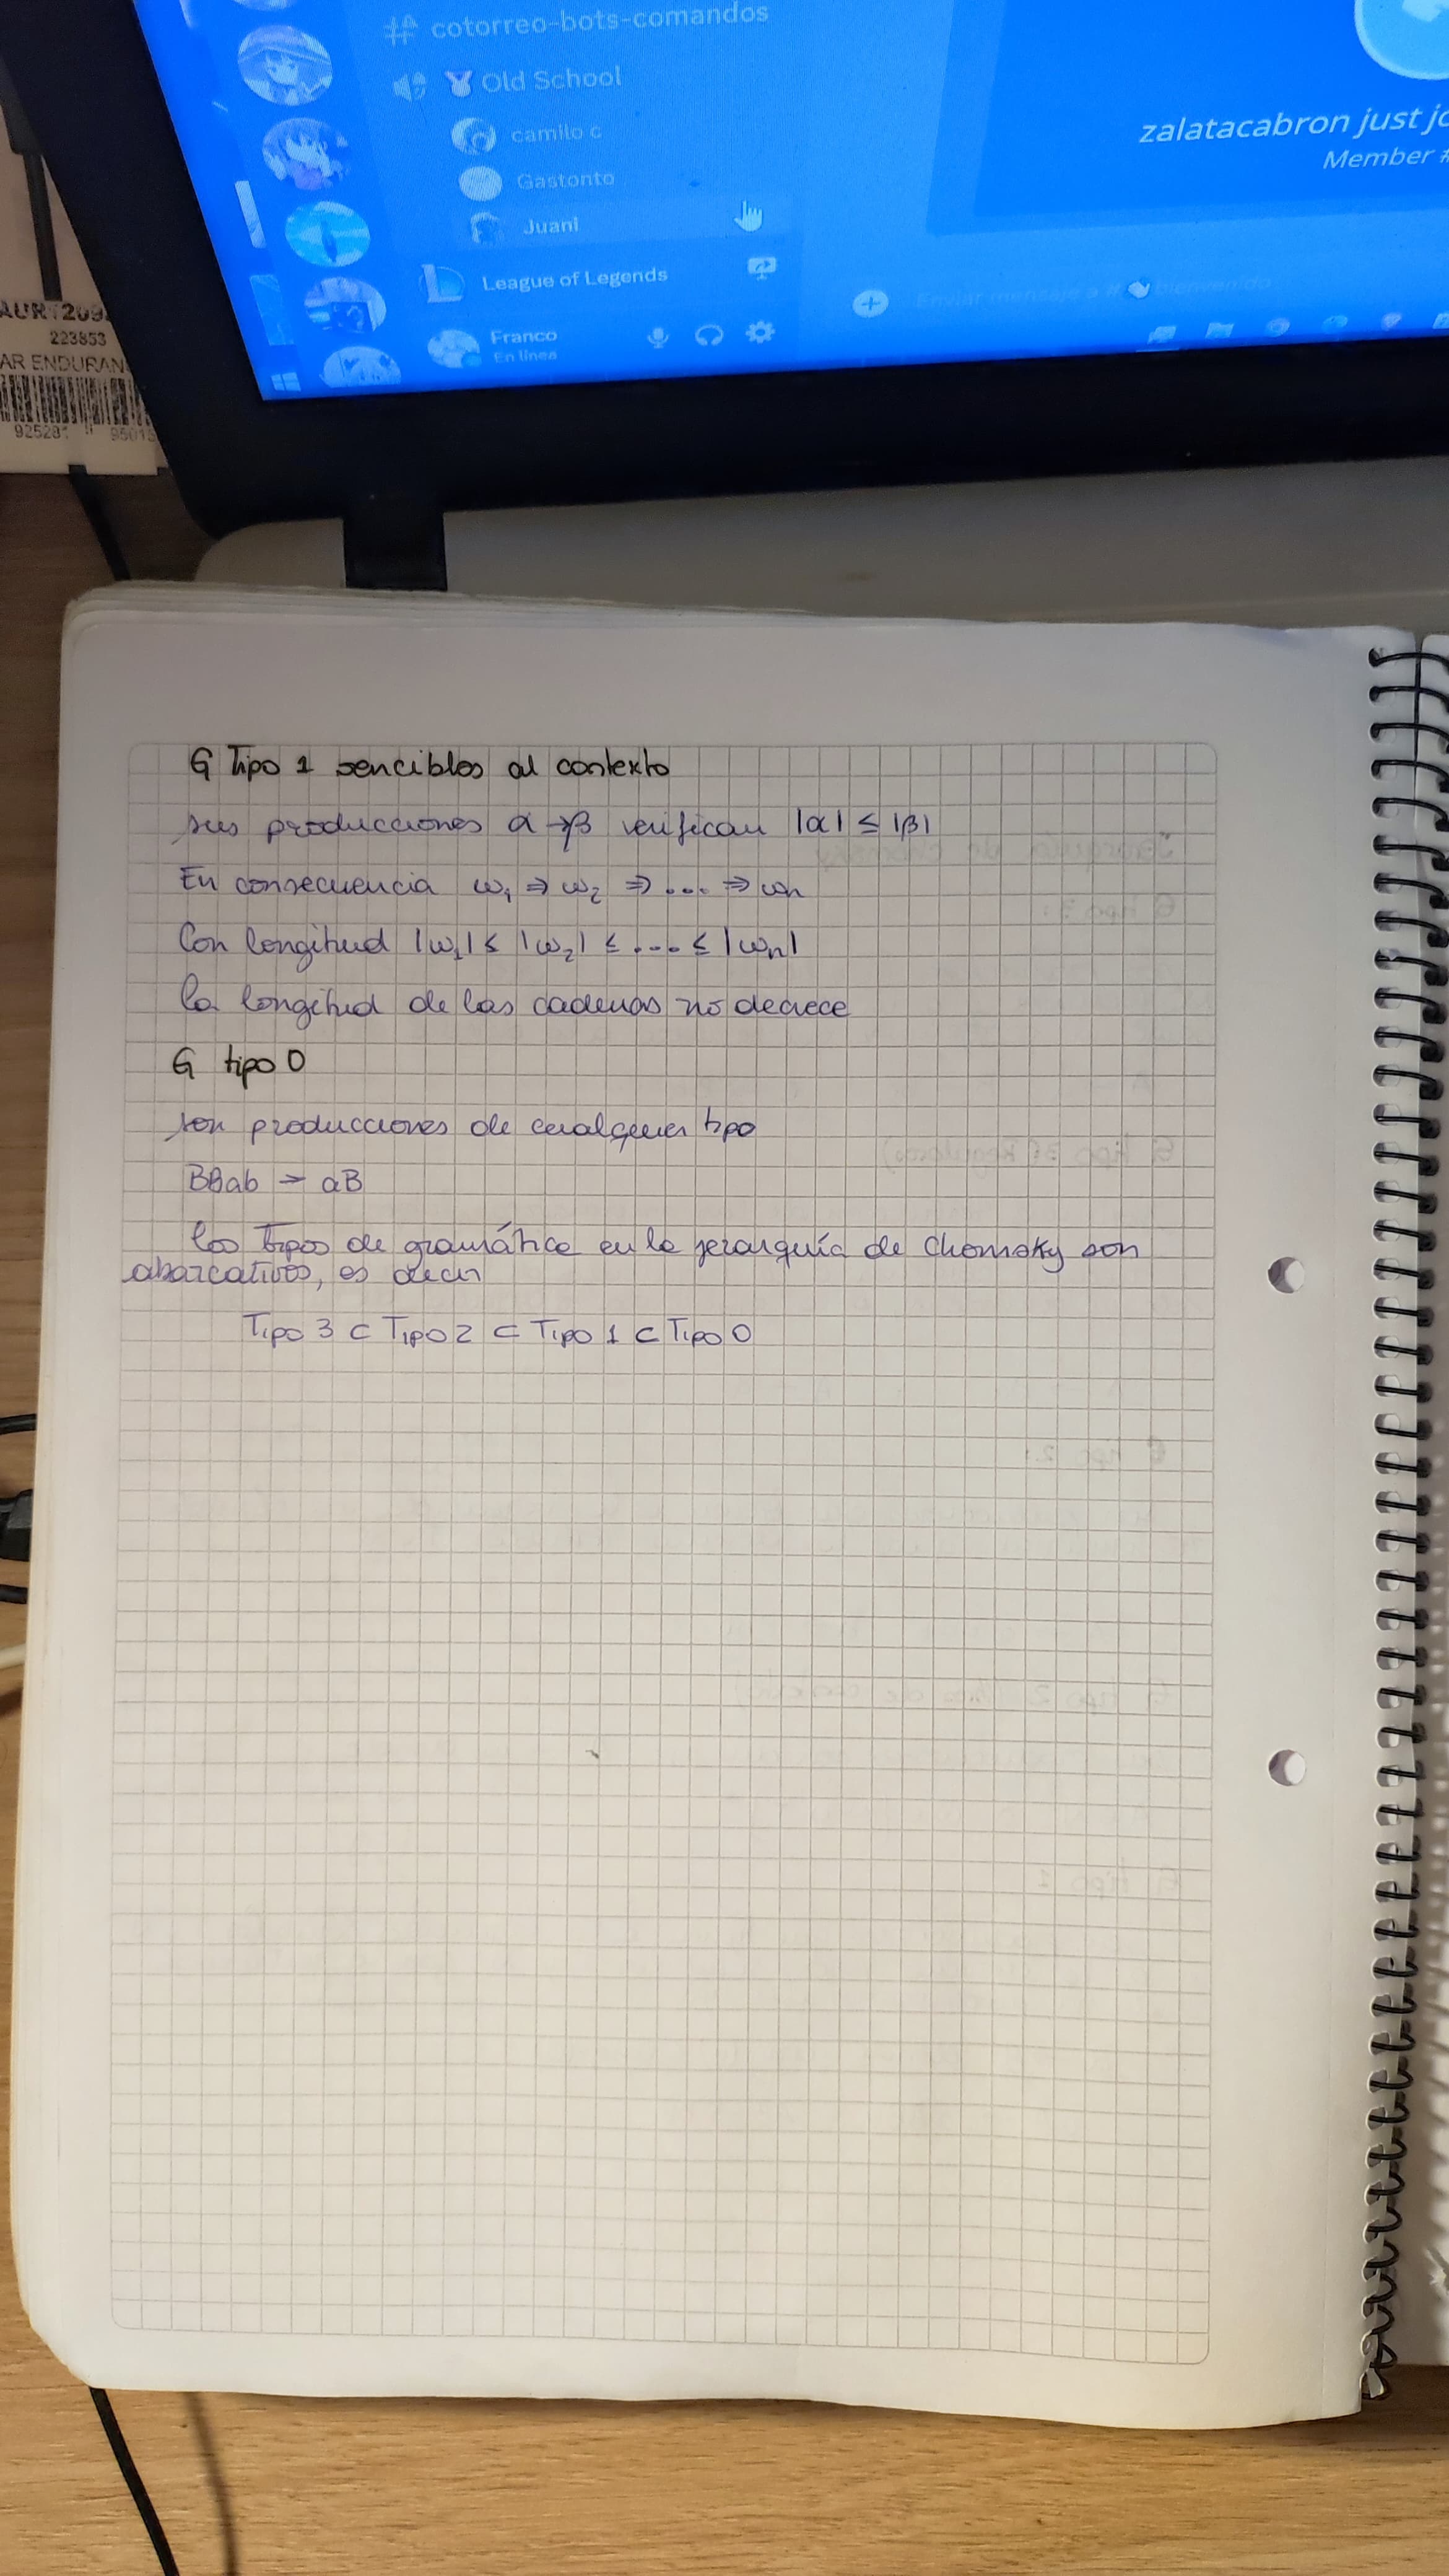 cotorreo-bots-comandos
Old School
camilo c
Gastonto
Juani
League of Legends
Franco
En línea
zalatacabron just jo
Member #
Enviar mensaje a # bienvenido
223853
AR ENDURAN
G Tipo 1 sencibles al contexto
sus producciones α → β verifican |α| ≤ |β|
En consecuencia ω₁ ⇒ ω₂ ⇒ .... ⇒ ωn
Con longitud |ω₁| ≤ |ω₂| ≤ .... ≤ |ωn|
la longitud de las cadenas no decrece
G tipo 0
son producciones de cualquier tipo
BBab → aB
los tipos de gramática en la jerarquía de Chomsky son
abarcativos, es decir
Tipo 3 ⊂ Tipo 2 ⊂ Tipo 1 ⊂ Tipo 0